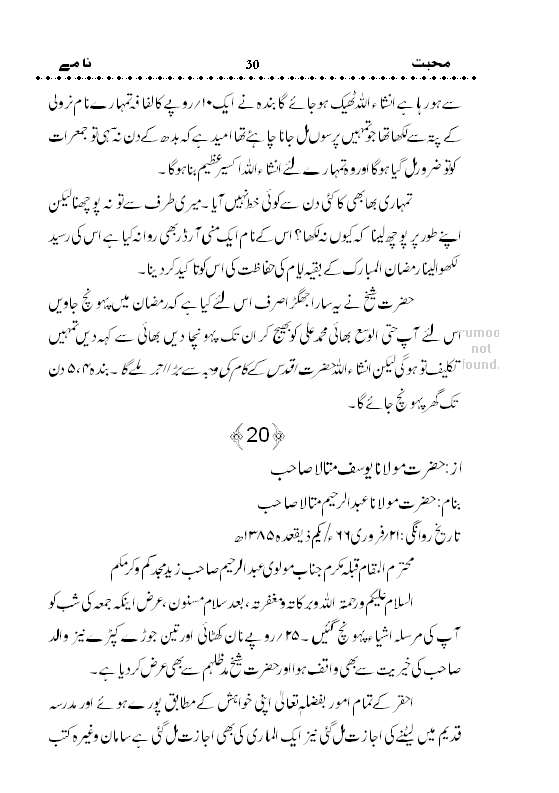 محبت 30 نامے
سے ہو رہا ہے انشاء اللہ ٹھیک ہو جائے گا بندہ نے ایک ۱۰؍روپے کا لفافہ تمہارے نام نرولی
کے پتہ سے لکھا تھا جو تمہیں پرسوں مل جانا چاہئے تھا امید ہے کہ بدھ کے دن نہ سہی تو جمعرات
کو تو ضرور مل گیا ہوگا اور وہ تمہارے لئے انشاء اللہ اکسیر عظیم بنا ہوگا۔
تمہاری بھابھی کا کئی دن سے کوئی خط نہیں آیا۔ میری طرف سے تو نہ پوچھنا لیکن
اپنے طور پر پوچھ لینا کہ کیوں نہ لکھا؟ اس کے نام ایک منی آرڈر بھی روانہ کیا ہے اس کی رسید
لکھوا لینا رمضان المبارک کے بقیہ ایام کی حفاظت کی اس کو تاکید کر دینا۔
حضرت شیخ نے یہ سارا جھگڑا صرف اس لئے کیا ہے کہ رمضان میں پہونچ جاویں
اس لئے آپ حتی الوسع بھائی محمد علی کو بھیج کر ان تک پہونچا دیں بھائی سے کہہ دیں تمہیں
تکلیف تو ہوگی لیکن انشاء اللہ حضرت اقدس کے کام کی وجہ سے بڑا اجر ملے گا۔ بندہ ۵،۴ دن
تک گھر پہونچ جائے گا۔
rumoo
not
found.
﴿20﴾
از: حضرت مولانا یوسف متالا صاحب
بنام: حضرت مولانا عبد الرحیم متالا صاحب
تاریخ روانگی: ۲۱؍فروری ۶۶ء؍یکم ذیقعدہ ۱۳۸۵ھ
محترم المقام قبلہ مکرم جناب مولوی عبد الرحیم صاحب زید مجدکم وکرمکم
السلام علیکم ورحمۃ اللہ وبرکاتہ ومغفرتہ، بعد سلام مسنون، عرض اینکہ جمعہ کی شب کو
آپ کی مرسلہ اشیاء پہونچ گئیں۔ ۲۵؍روپے نان کھٹائی اور تین جوڑے کپڑے نیز والد
صاحب کی خیریت سے بھی واقف ہوا اور حضرت شیخ مدظلہم سے بھی عرض کر دیا ہے۔
احقر کے تمام امور بفضلہ تعالیٰ اپنی خواہش کے مطابق پورے ہوئے اور مدرسہ
قدیم میں لیٹنے کی اجازت مل گئی نیز ایک الماری کی بھی اجازت مل گئی ہے سامان وغیرہ کتب